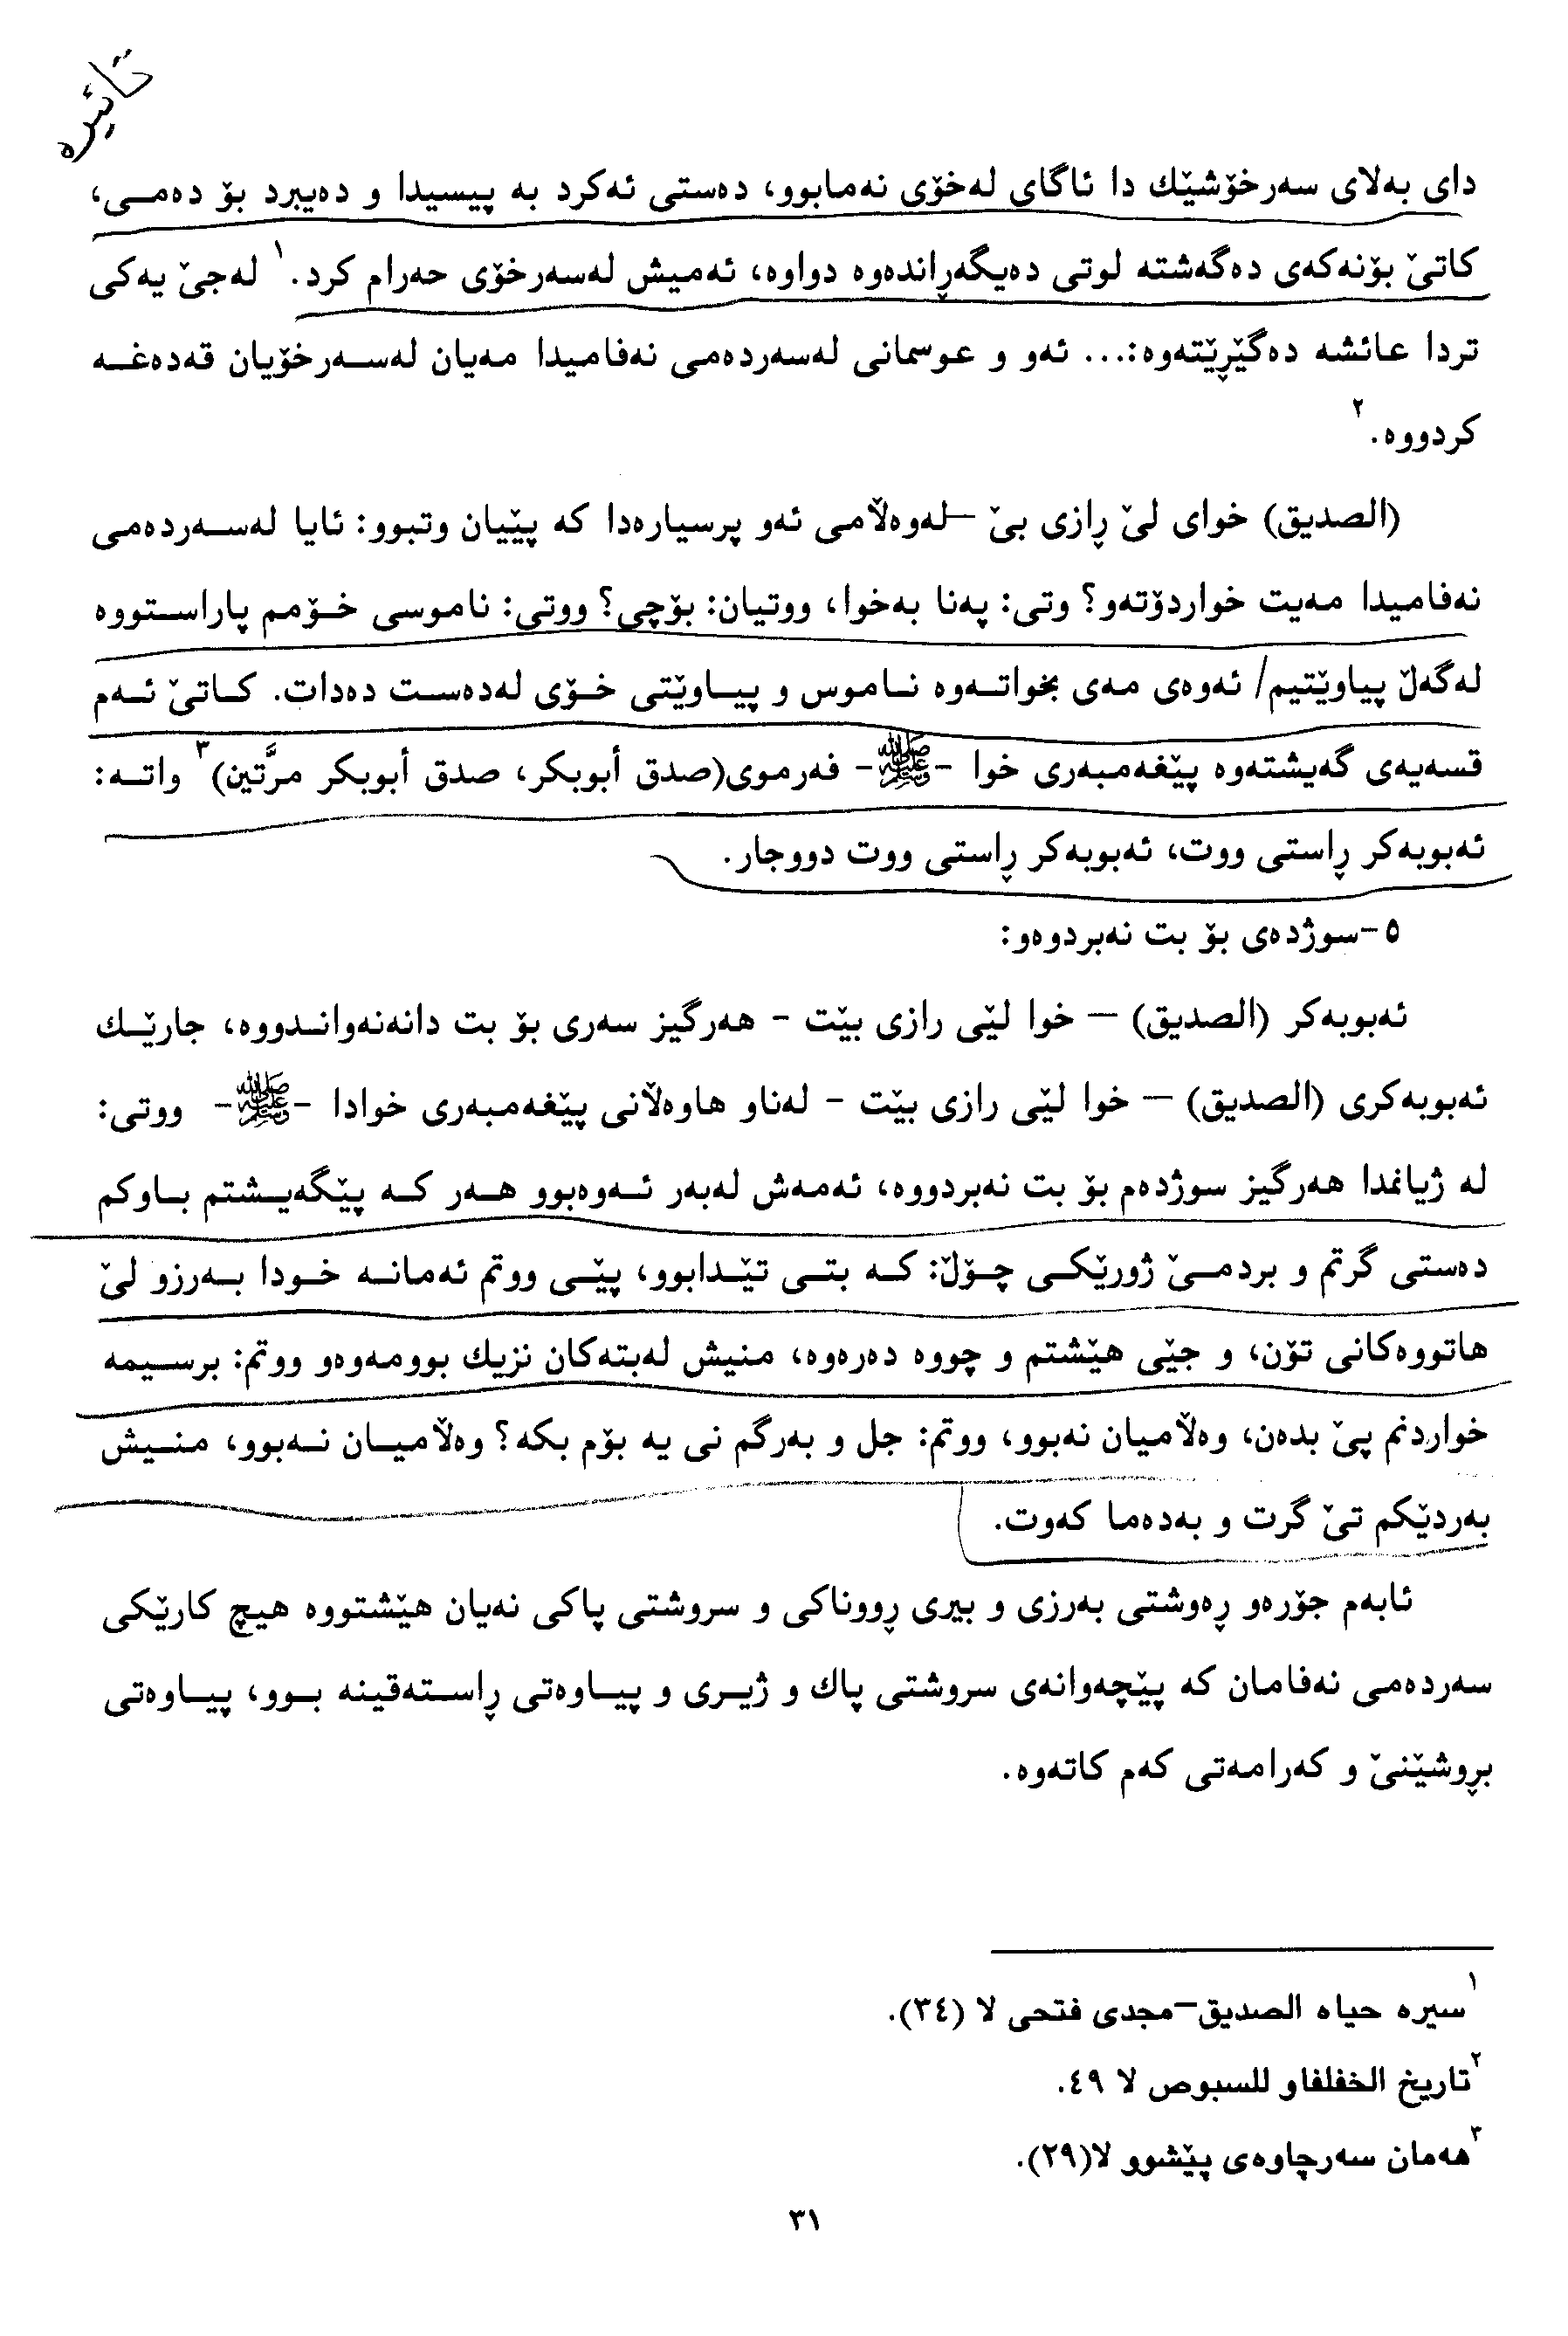 دای بەلای سەرخۆشێك دا ئاگای لەخۆی نەمابوو، دەستی ئەکرد بە پیسیدا و دەیبرد بۆ دەمی،
کاتێ بۆنەکەی دەگەشتە لوتی دەیگەڕاندەوە دواوە، ئەمیش لەسەرخۆی حەرام کرد.١ لەجێ یەکی
تردا عائشە دەگێڕێتەوە:... ئەو و عوسمانی لەسەردەمی نەفامیدا مەیان لەسەرخۆیان قەدەغە
کردووە.٢
(الصدیق) خوای لێ ڕازی بێ –لەوەڵامی ئەو پرسیارەدا کە پێیان وتبوو: ئایا لەسەردەمی
نەفامیدا مەیت خواردۆتەو؟ وتی: پەنا بەخوا، ووتیان: بۆچی؟ ووتی: ناموسی خۆمم پاراستووە
لەگەڵ پیاوێتیم/ ئەوەی مەی بخواتەوە ناموس و پیاوێتی خۆی لەدەست دەدات. کاتێ ئەم
قسەیەی گەیشتەوە پێغەمبەری خوا -ﷺ- فەرموی(صدق أبوبکر، صدق أبوبکر مرَّتین)٣ واتە:
ئەبوبەکر ڕاستی ووت، ئەبوبەکر ڕاستی ووت دووجار.
٥-سوژدەی بۆ بت نەبردوەو:
ئەبوبەکر (الصدیق) – خوا لێی رازی بێت - هەرگیز سەری بۆ بت دانەنەواندووە، جارێك
ئەبوبەکری (الصدیق) – خوا لێی رازی بێت - لەناو هاوەڵانی پێغەمبەری خوادا -ﷺ- ووتی:
لە ژیانمدا هەرگیز سوژدەم بۆ بت نەبردووە، ئەمەش لەبەر ئەوەبوو هەر کە پێگەیشتم باوکم
دەستی گرتم و بردمێ ژورێکی چۆڵ: کە بتی تێدابوو، پێی ووتم ئەمانە خودا بەرزو لێ
هاتووەکانی تۆن، و جێی هێشتم و چووە دەرەوە، منیش لەبتەکان نزیك بوومەوەو ووتم: برسیمە
خواردنم پێ بدەن، وەڵامیان نەبوو، ووتم: جل و بەرگم نی یە بۆم بکە؟ وەڵامیان نەبوو، منیش
بەردێکم تێ گرت و بەدەما کەوت.
ئابەم جۆرەو ڕەوشتی بەرزی و بیری ڕووناکی و سروشتی پاکی نەیان هێشتووە هیچ کارێکی
سەردەمی نەفامان کە پێچەوانەی سروشتی پاك و ژیری و پیاوەتی ڕاستەقینە بوو، پیاوەتی
بڕوشێنێ و کەرامەتی کەم کاتەوە.
١ سیرە حیاە الصدیق–مجدی فتحی لا (٣٤).
٢ تاریخ الخفلفاو للسبوص لا ٤٩.
٣ هەمان سەرچاوەی پێشوو لا(٢٩).
٣١